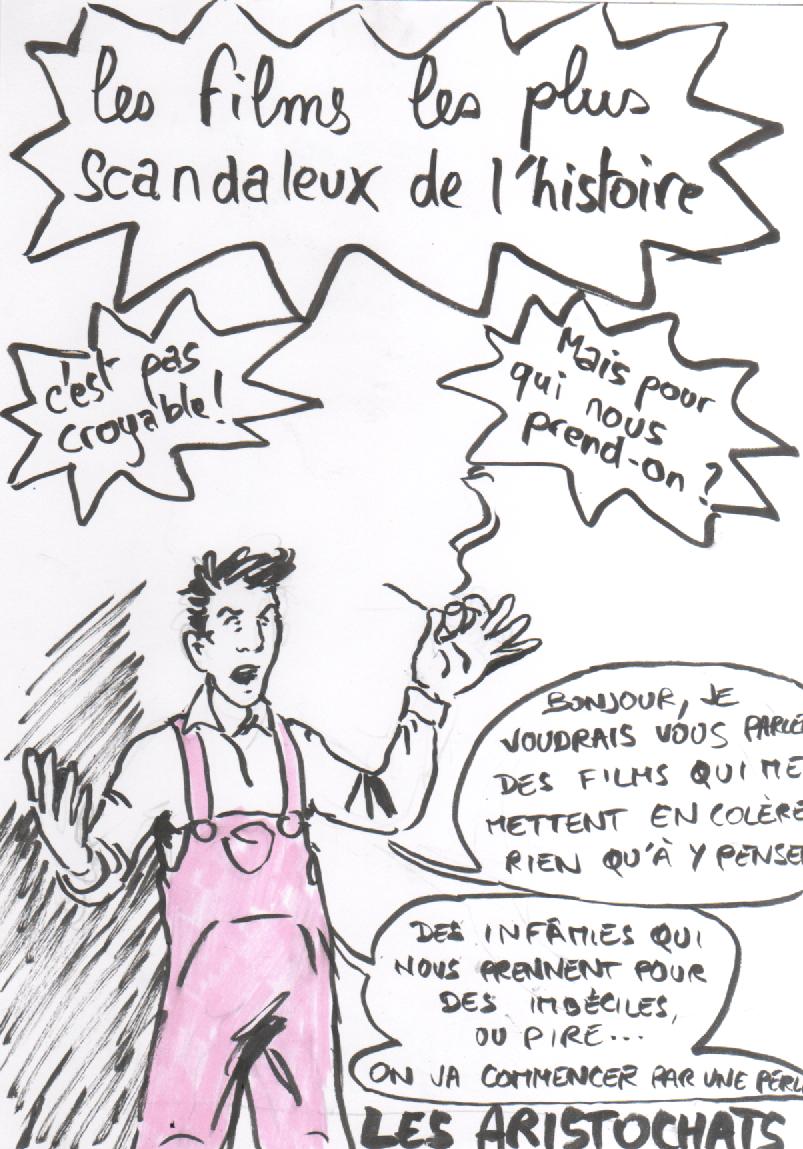 les films les plus
scandaleux de l'histoire
c'est pas
croyable!
Mais pour
qui nous
prend-on?
BONJOUR, JE
VOUDRAIS VOUS PARLE
DES FILMS QUI ME
METTENT EN COLÈRE
RIEN QU'À Y PENSE
DES INFÂMIES QUI
NOUS PRENNENT POUR
DES IMBÉCILES,
OU PIRE...
ON VA COMMENCER PAR UNE PERL
LES ARISTOCHATS